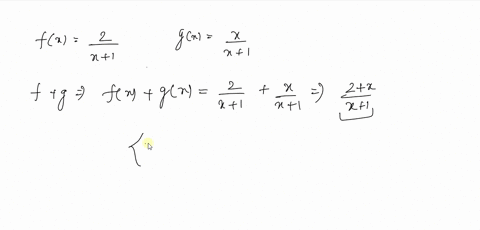 f(x) = 2/(x+1) g(x) = x/(x+1)
f + g ⇒ f(x) + g(x) = 2/(x+1) + x/(x+1) ⇒ (2+x)/(x+1)